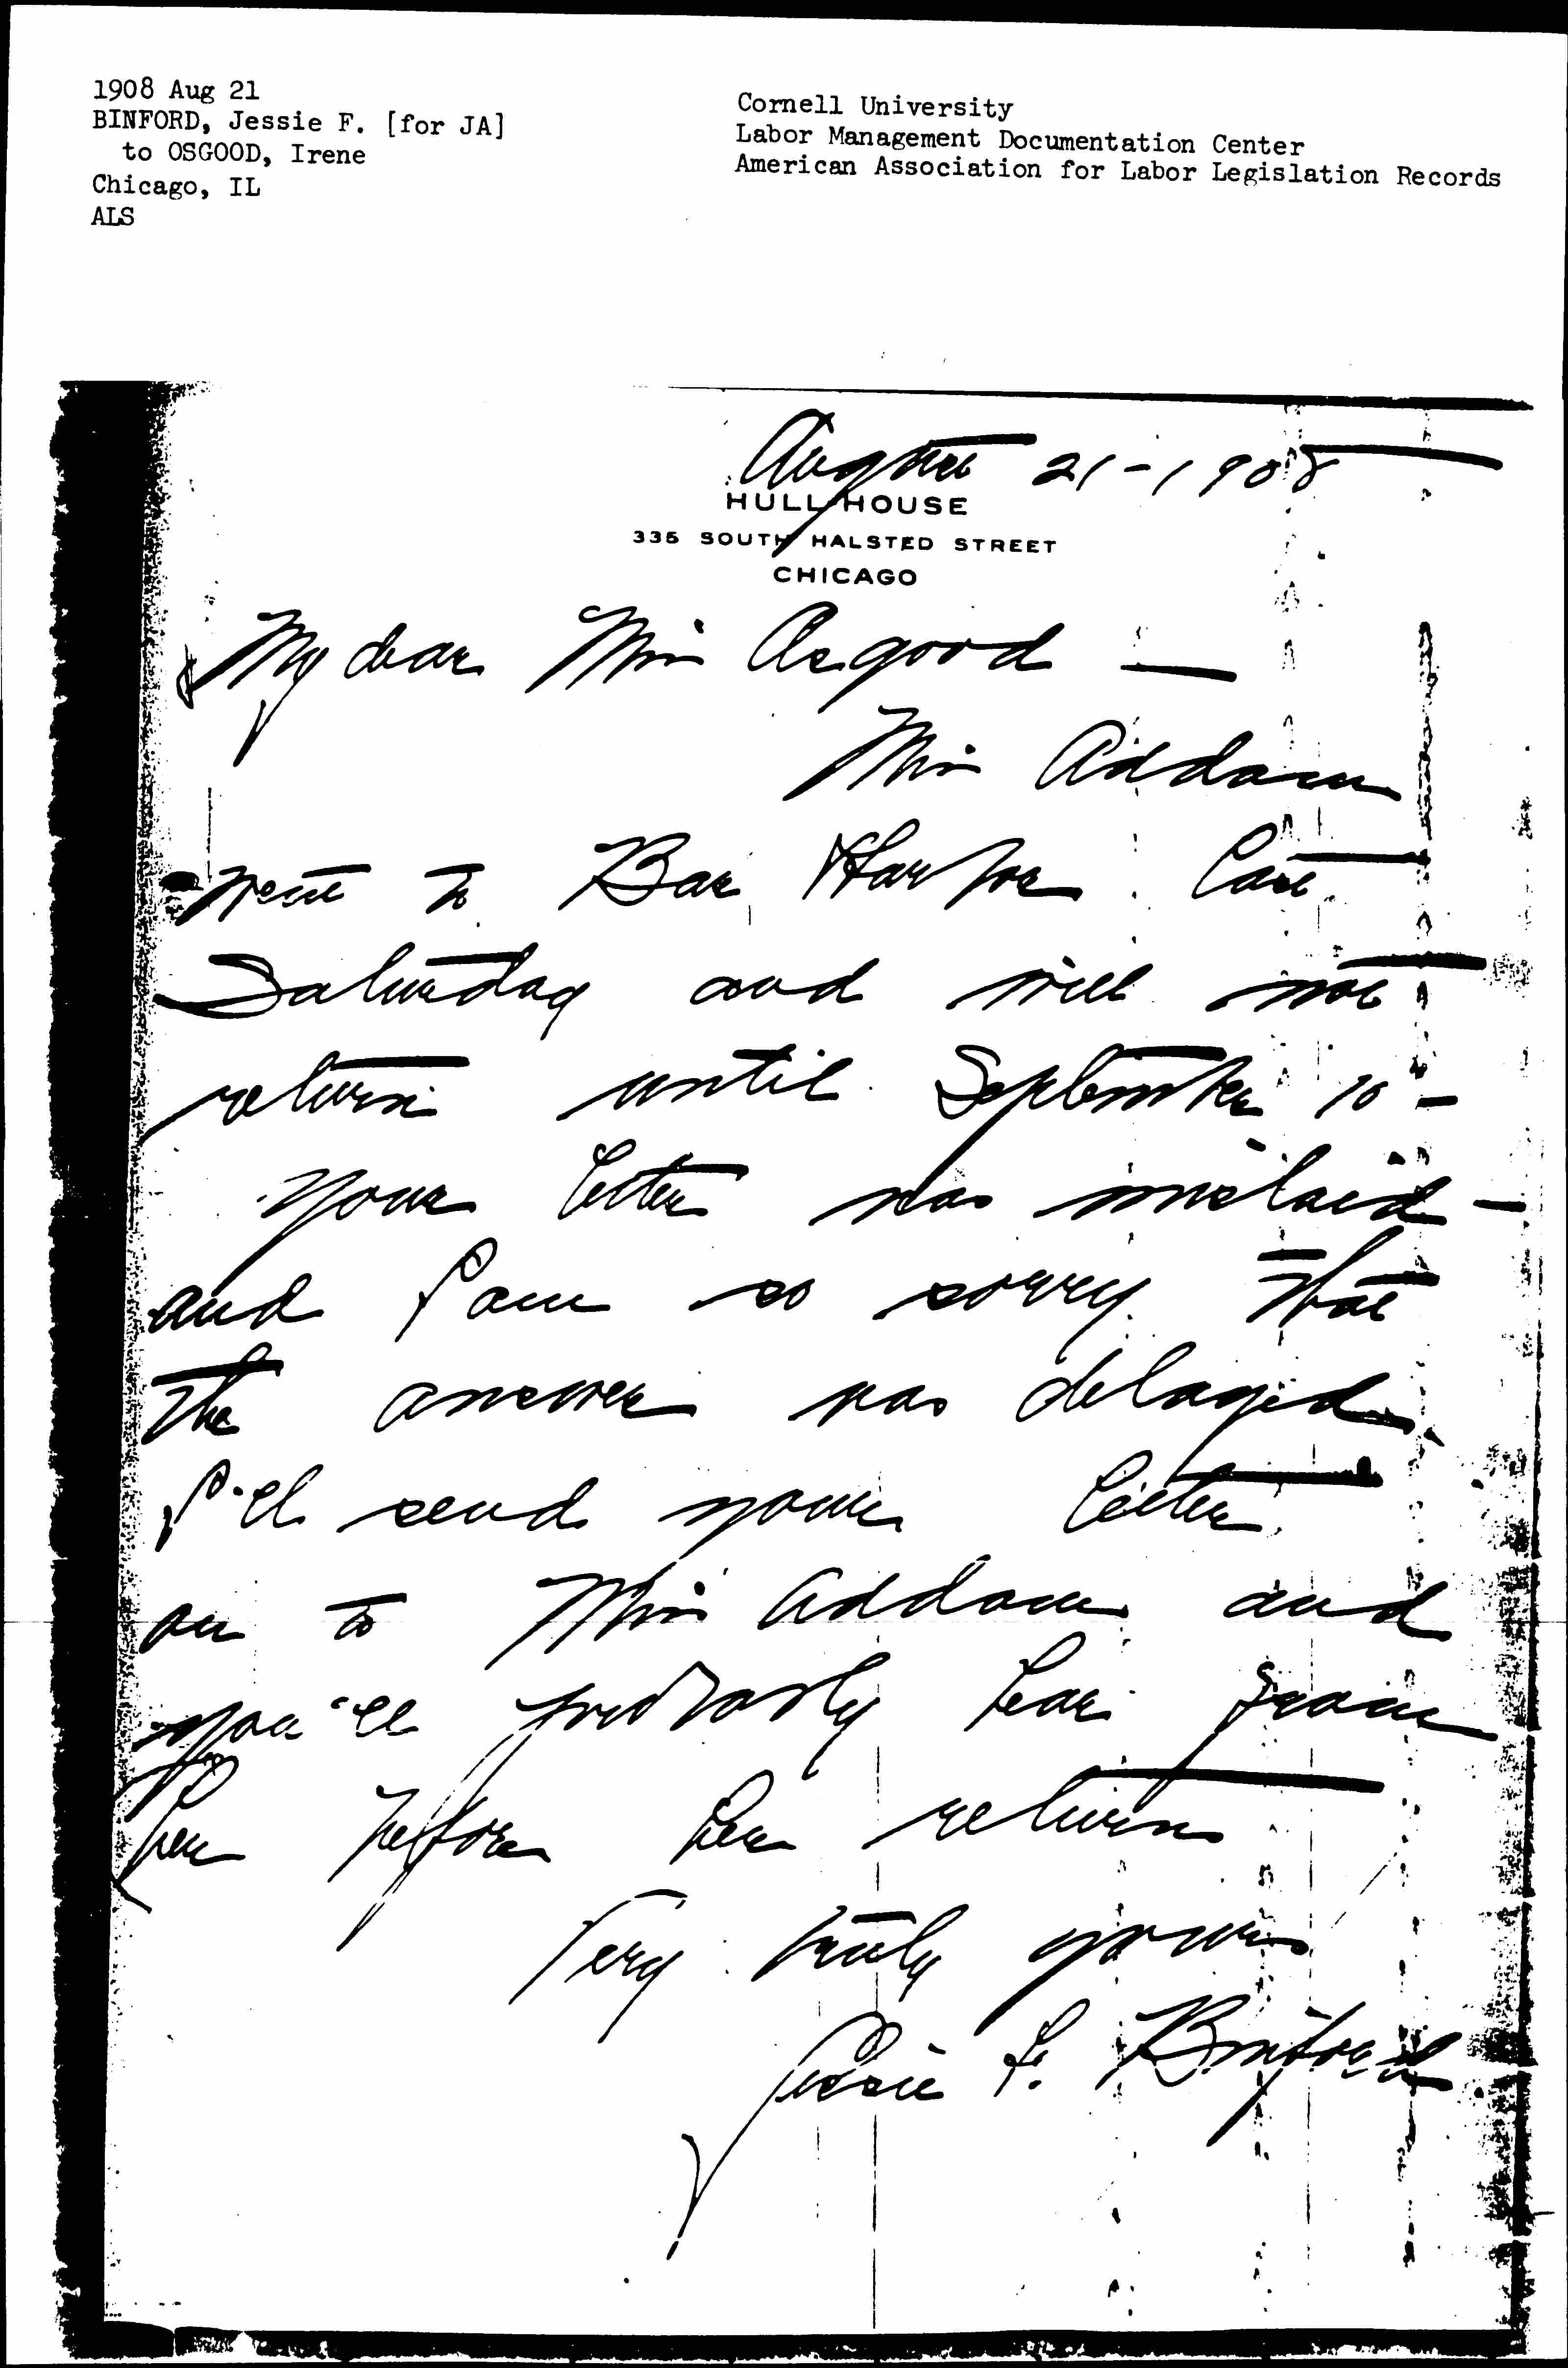 1908 Aug 21
BINFORD, Jessie F. [for JA]
to OSGOOD, Irene
Chicago, IL
ALS
Cornell University
Labor Management Documentation Center
American Association for Labor Legislation Records
August 21-1908
HULL-HOUSE
335 SOUTH HALSTED STREET
CHICAGO
My dear Miss Osgood —
Miss Addams
went to Bar Harbor last
Saturday and will not
return until September 10 -
Your letter was mislaid -
and I am so sorry that
the answer was delayed.
I'll send your letter
on to Miss Addams and
you'll probably hear from
her before her return
Very truly yours
Jessie F. Binford